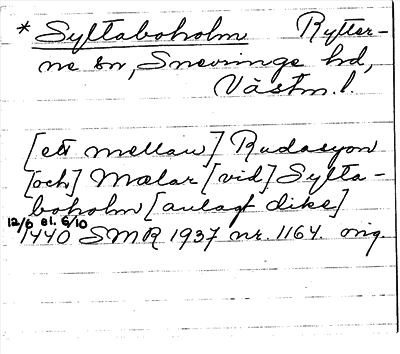 * Syltaboholm Rytter-
ne sn, Snevringe hd,
Västm. l.
[ett mellan] Rudasyon
[och] Mælar [vid] Sylta-
boholm [anlagt dike]
12/6 el. 6/10
1440 SMR 1937 nr. 1164. orig.